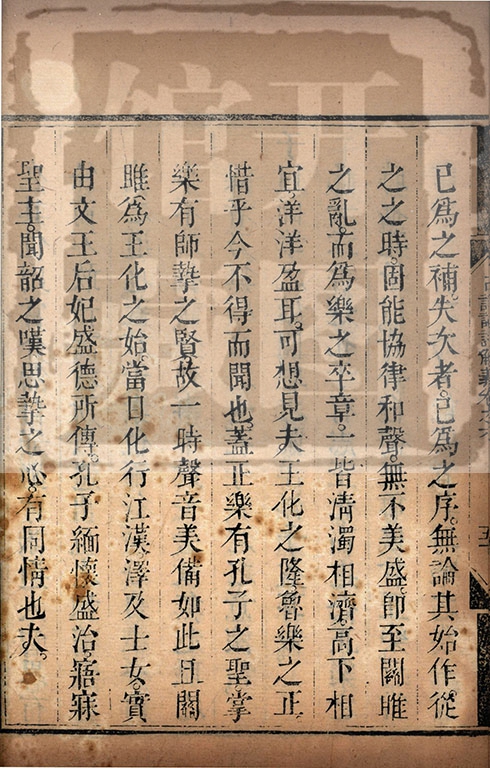 已爲之補。失次者。已爲之序。無論其始作從
之之時。固能協律和聲。無不美盛。即至關雎
之亂。而爲樂之卒章。一皆清濁相濟。高下相
宜。洋洋盈耳。可想見夫。王化之隆。魯樂之正。
惜乎今不得而聞也。蓋正樂有孔子之聖。掌
樂有師摯之賢。故一時聲音美備如此。且關
雎爲王化之始。當日化行江漢。澤及士女。實
由文王后妃盛德所傳。孔子緬懷盛治。寤寐
聖主。聞韶之嘆。思摯之心。有同情也夫。